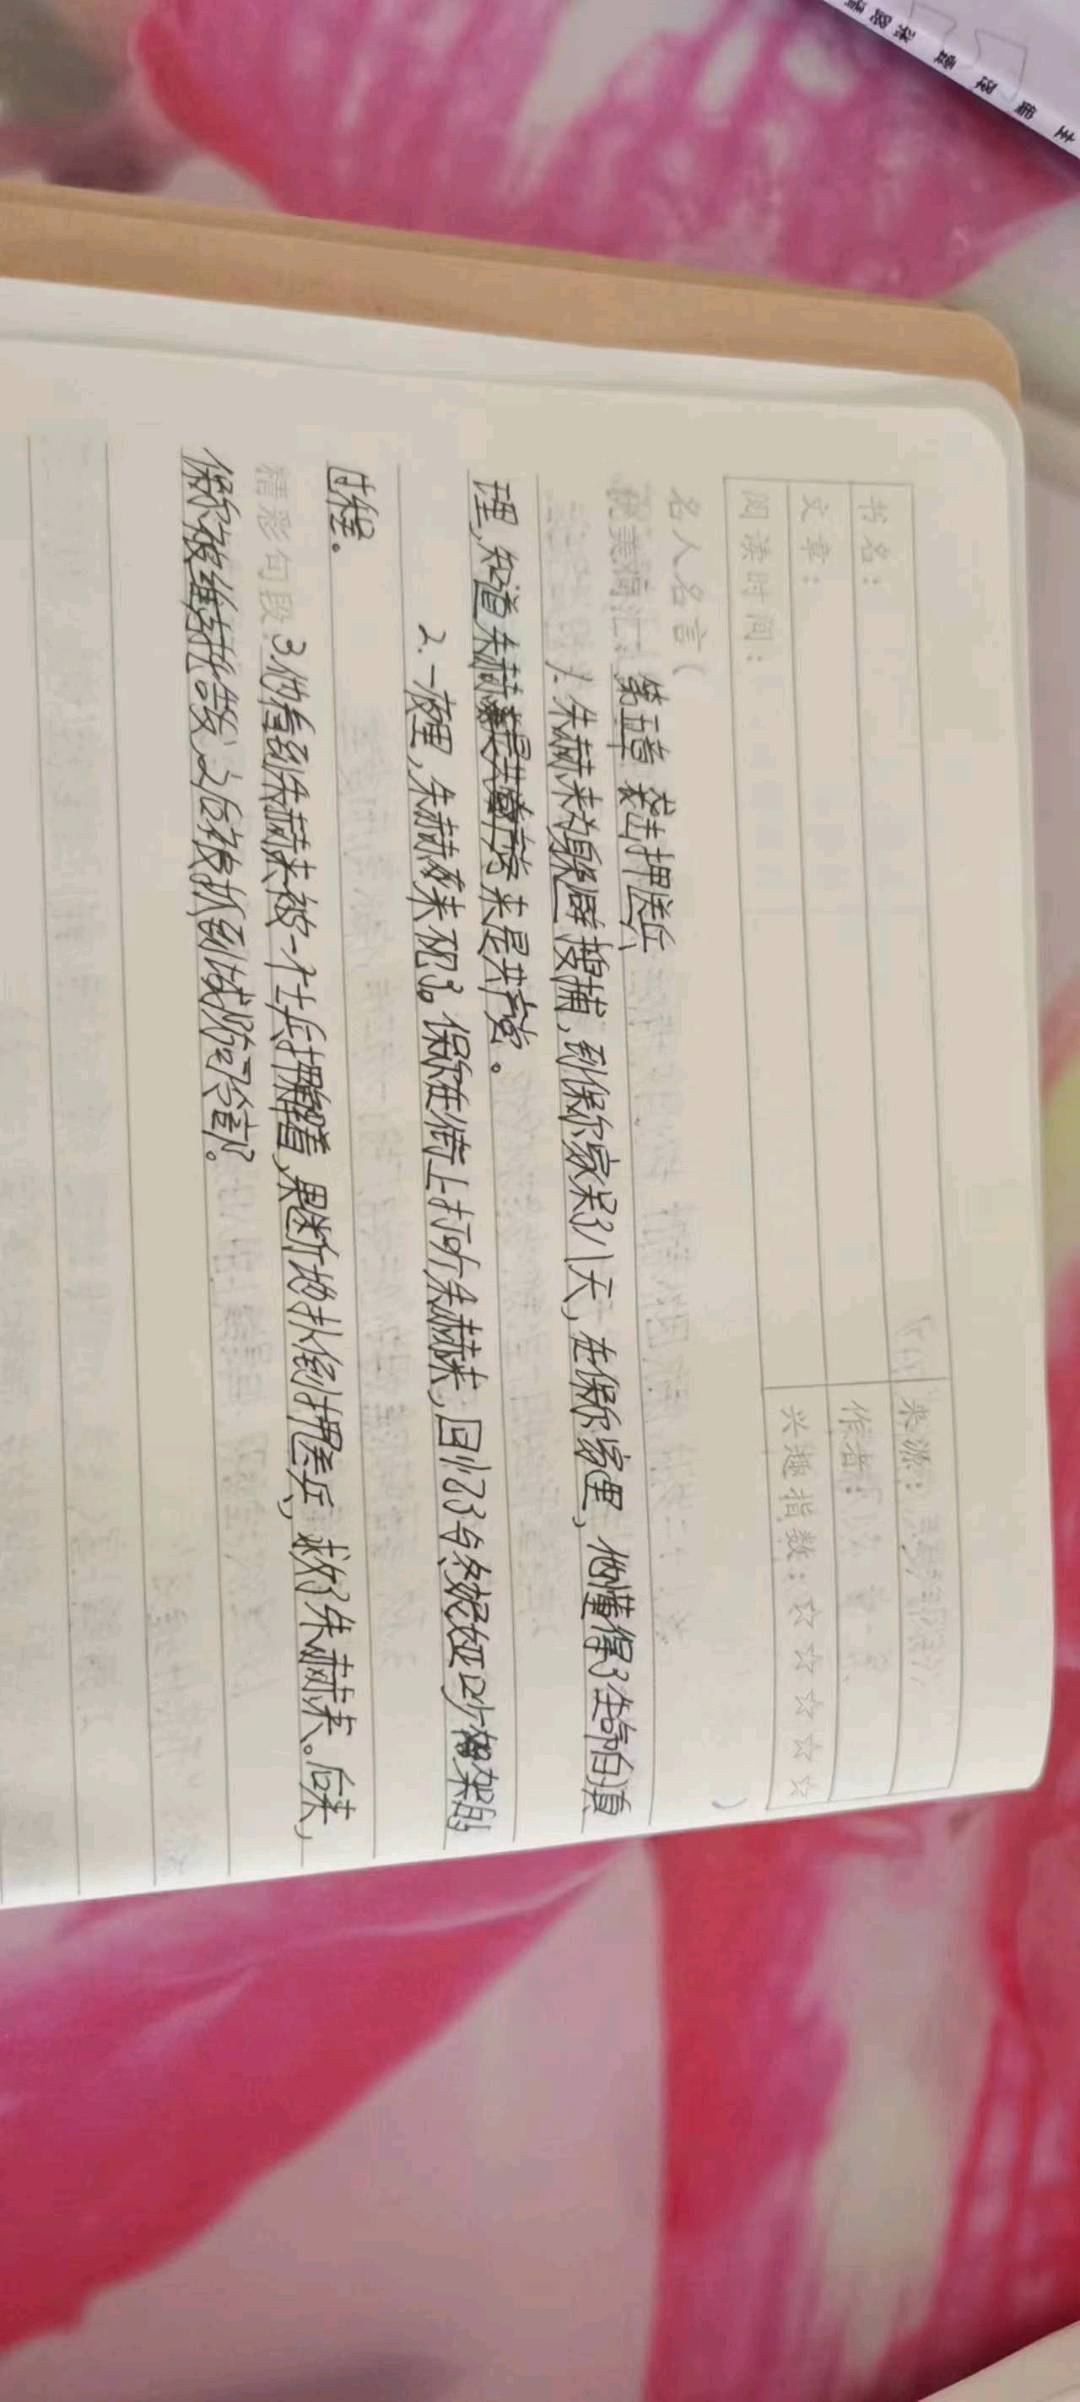 书名：
来源：
文章：
作者：
阅读时间：
兴趣指数：☆☆☆☆☆
名人名言（ ）
优美词汇
第五章 袭击押送兵
1.朱赫来为躲避搜捕，到保尔家呆了八天，在保尔家里，他懂得了生命的真
理，知道朱赫来是共产党。
2.一夜里，朱赫来不见了。保尔在街上打听朱赫来，回忆了与冬妮娅吵架的
过程。
精彩句段：
3.他看到朱赫来被一个士兵押着，果断地扑倒押送兵，救了朱赫来。后来，
保尔被维克托告发，之后被抓到城防司令部。